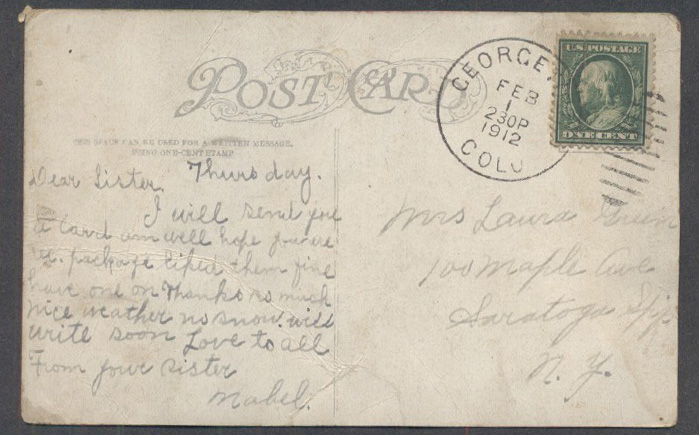 POST CARD
THIS SPACE CAN BE USED FOR A WRITTEN MESSAGE,
USING ONE-CENT STAMP
U.S. POSTAGE
ONE CENT
GEORGE
FEB
1
230P
1912
COLO
Thursday.
Dear Sister.
I will send you
a Card am well hope you are
package liked them fine
have one on Thanks so much
nice weather no snow. will
write soon Love to all
From your sister
Mabel.
Mrs Laura Green
100 Maple Ave
Saratoga Spgs
N. Y.